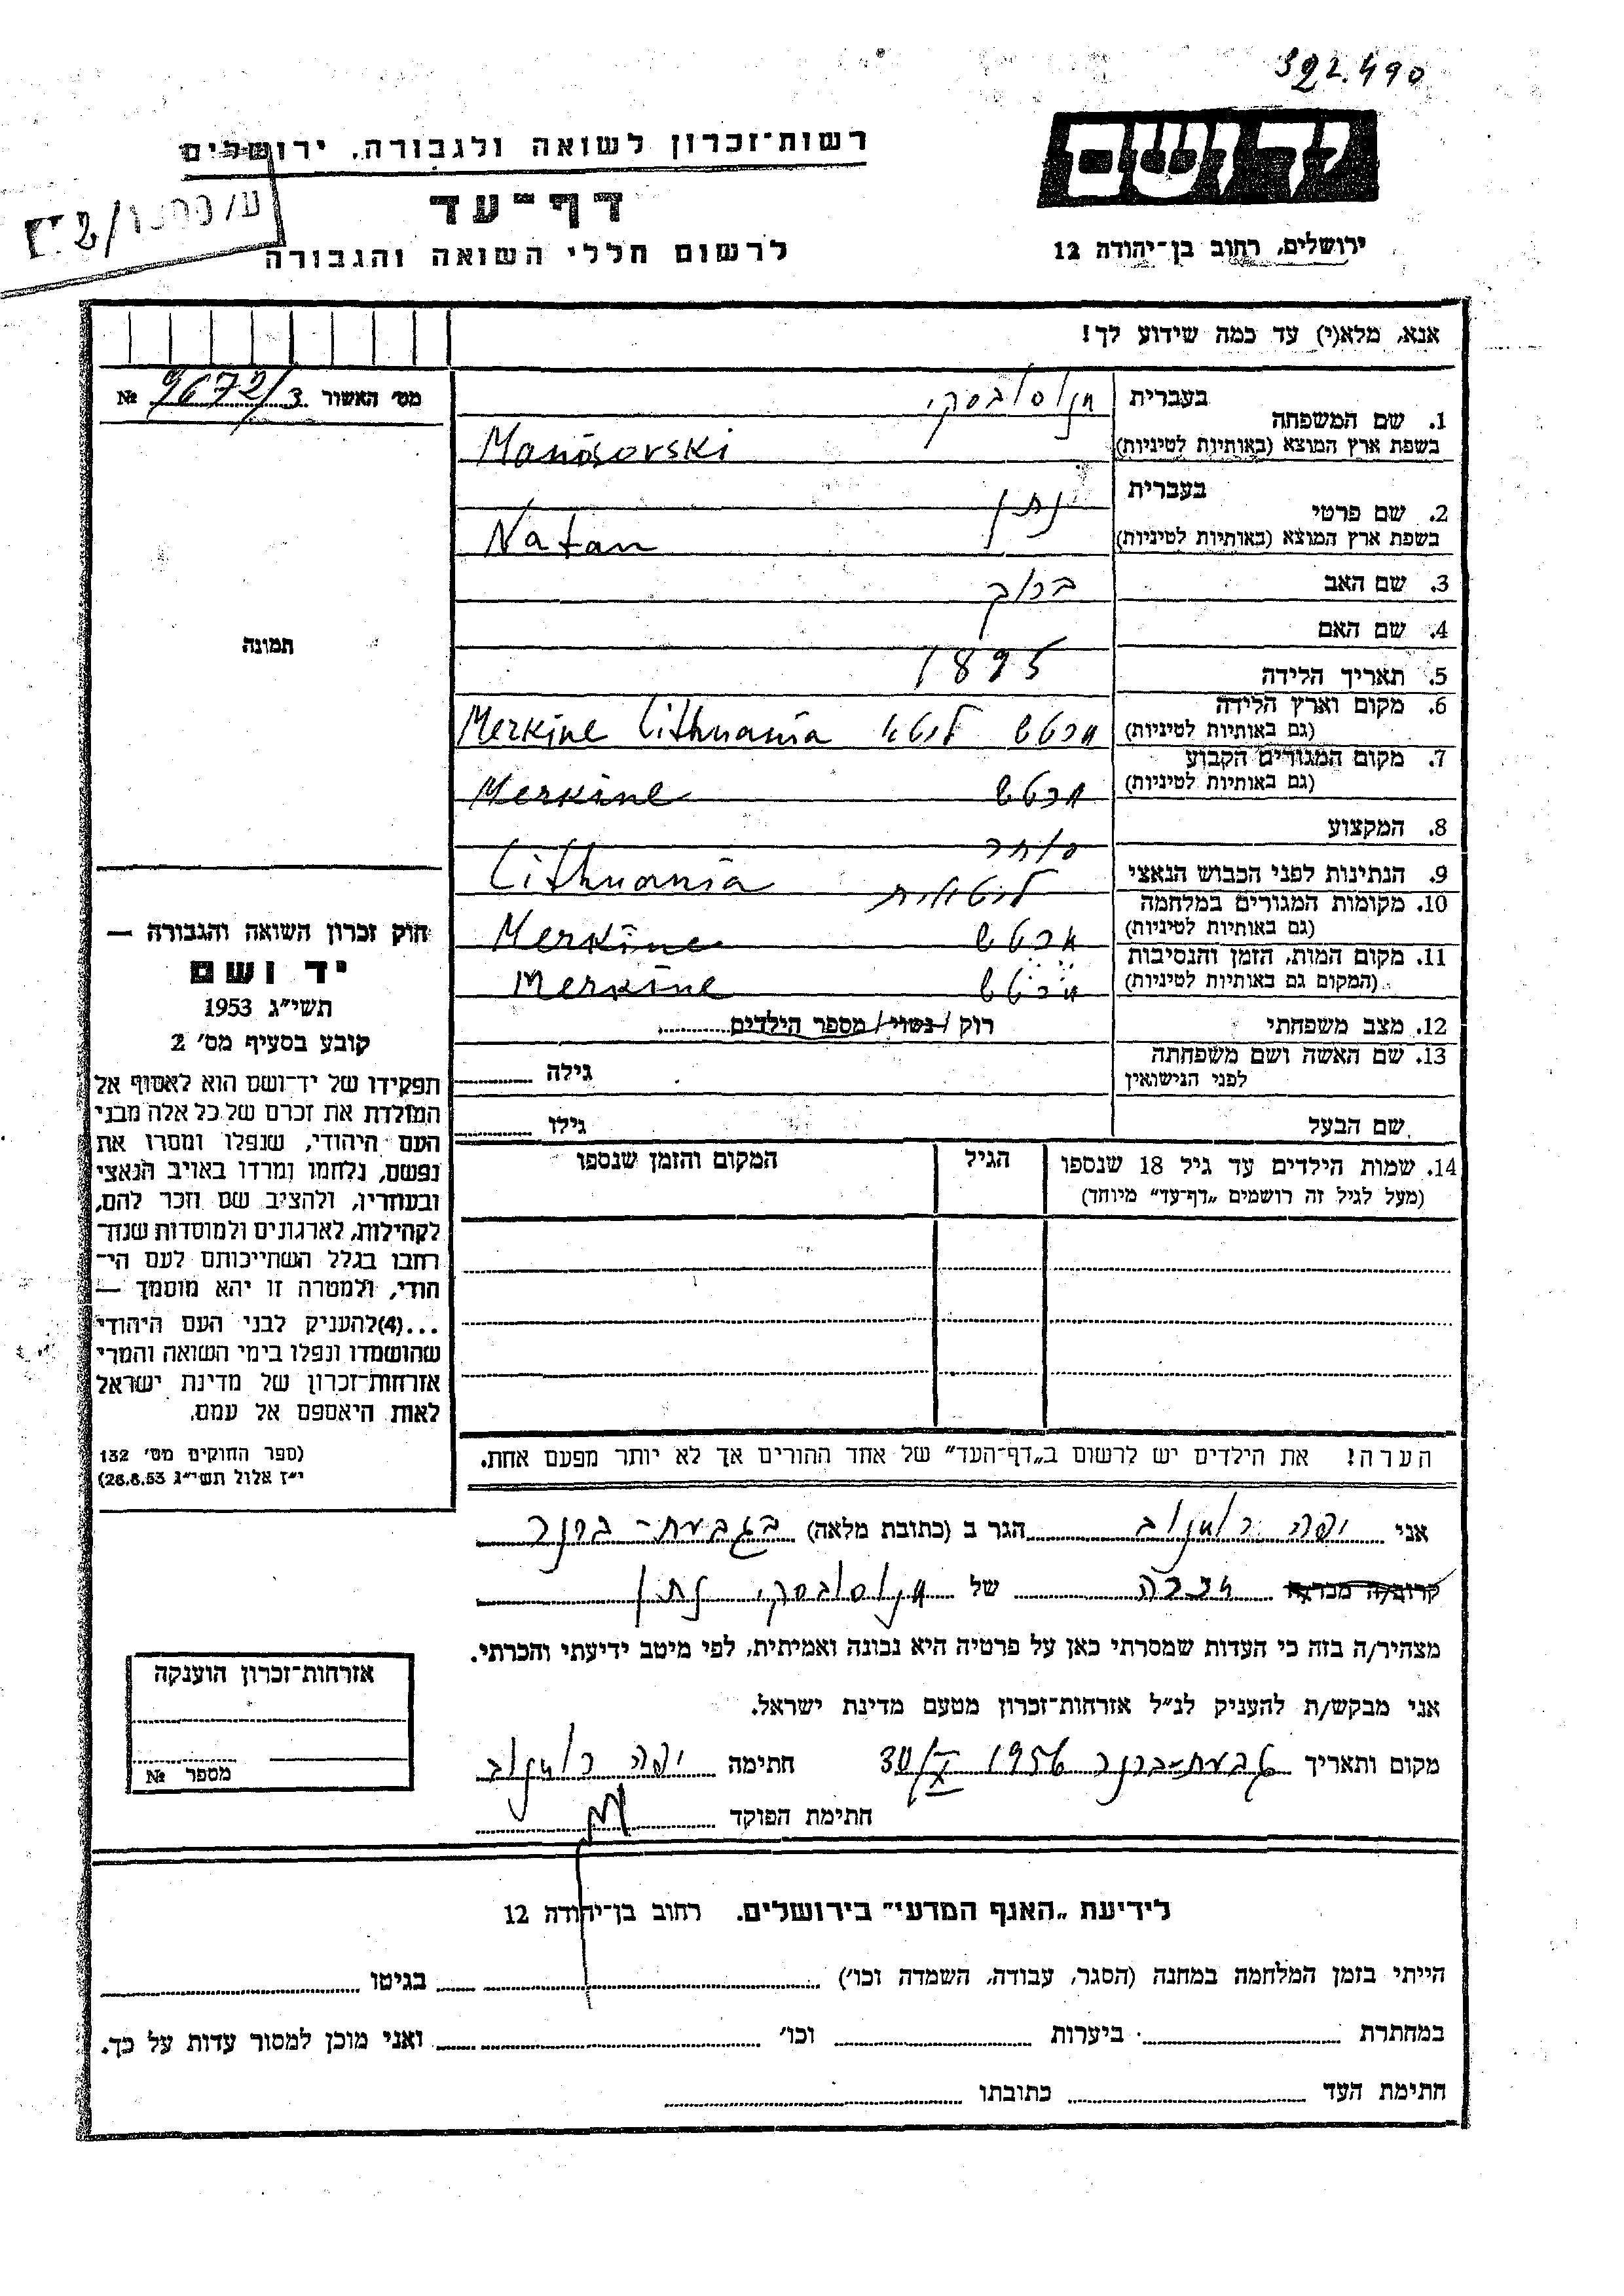 392.490
יד ושם
ירושלים, רחוב בן־יהודה 12
רשות־זכרון לשואה ולגבורה, ירושלים
דף־עד
לרשום חללי השואה והגבורה
אנא, מלא(י) עד כמה שידוע לך!
מס׳ האשור 9672/3 №
תמונה
1. שם המשפחה
בעברית
בשפת ארץ המוצא (באותיות לטיניות)
Manosovski
2. שם פרטי
בעברית נתן
בשפת ארץ המוצא (באותיות לטיניות) Natan
3. שם האב ברוך
4. שם האם
5. תאריך הלידה 1895
6. מקום וארץ הלידה
(גם באותיות לטיניות) Merkine Lithuania ליטא
7. מקום המגורים הקבוע
(גם באותיות לטיניות) Merkine
8. המקצוע סוחר
9. הנתינות לפני הכבוש הנאצי ליטאית Lithuania
10. מקומות המגורים במלחמה
(גם באותיות לטיניות) Merkine
11. מקום המות, הזמן והנסיבות
(המקום גם באותיות לטיניות) Merkine
12. מצב משפחתי רוק / נשוי / מספר הילדים
13. שם האשה ושם משפחתה
לפני הנישואין
גילה
שם הבעל
גילו
14. שמות הילדים עד גיל 18 שנספו
(מעל לגיל זה רושמים „דף־עד” מיוחד)
הגיל
המקום והזמן שנספו
הערה! את הילדים יש לרשום ב„דף־העד” של אחד ההורים אך לא יותר מפעם אחת.
חוק זכרון השואה והגבורה —
יד ושם
תשי״ג 1953
קובע בסעיף מס׳ 2
תפקידו של יד־ושם הוא לאסוף אל
המולדת את זכרם של כל אלה מבני
העם היהודי, שנפלו ומסרו את
נפשם, נלחמו ומרדו באויב הנאצי
ובעוזריו, ולהציב שם וזכר להם,
לקהילות, לארגונים ולמוסדות שנח־
רבו בגלל השתייכותם לעם הי־
הודי, ולמטרה זו יהא מוסמך —
...(4) להעניק לבני העם היהודי
שהושמדו ונפלו בימי השואה והמרי
אזרחות־זכרון של מדינת ישראל
לאות היאספם אל עמם.
(ספר החוקים מס׳ 132
י״ז אלול תשי״ג 28.8.53)
אני יפה הגר ב (כתובת מלאה) בגבעת־ברנר
קרוב/ה מכר/ה של נתן
מצהיר/ה בזה כי העדות שמסרתי כאן על פרטיה היא נכונה ואמיתית, לפי מיטב ידיעתי והכרתי.
אני מבקש/ת להעניק לנ״ל אזרחות־זכרון מטעם מדינת ישראל.
מקום ותאריך גבעת־ברנר 1956 30/X חתימה יפה
חתימת הפוקד
אזרחות־זכרון הוענקה
מספר №
לידיעת „האגף המדעי” בירושלים, רחוב בן־יהודה 12
הייתי בזמן המלחמה במחנה (הסגר, עבודה, השמדה וכו׳) בגיטו
במחתרת ביערות וכו׳ ואני מוכן למסור עדות על כך.
חתימת העד כתובתו